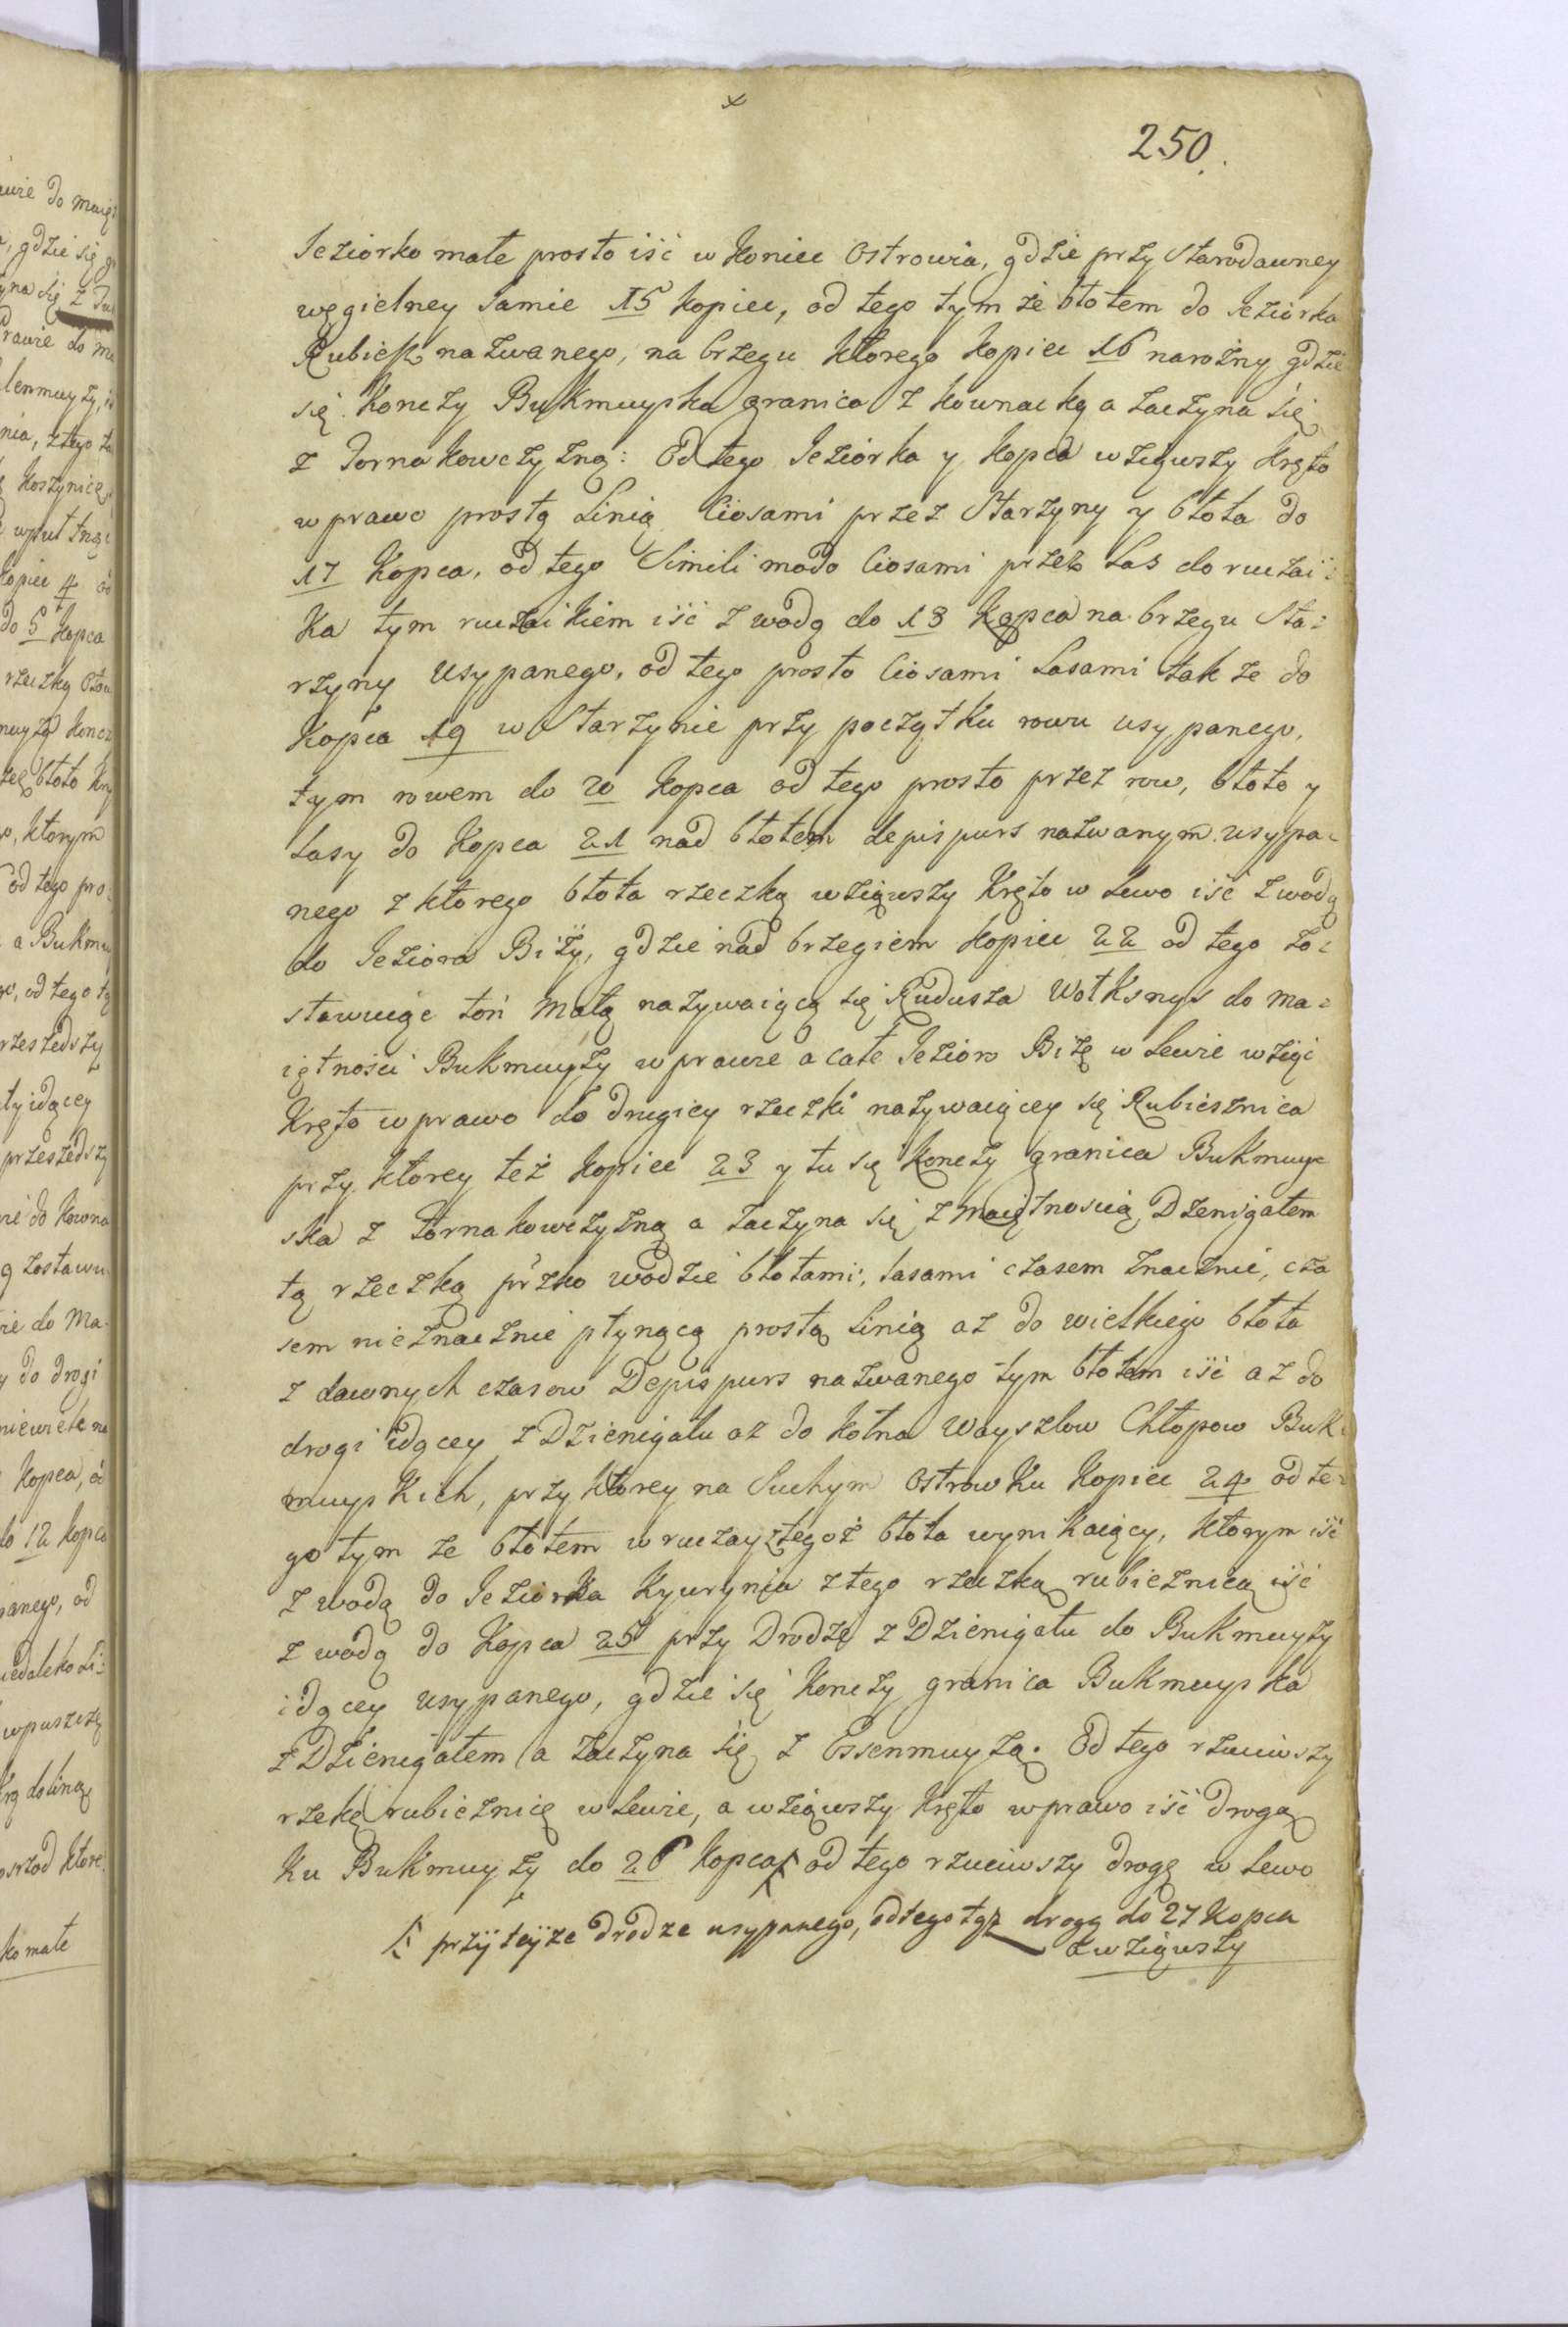 250.
Jeziorko małe prosto iść w koniec Ostrowia, gdzie przy Starodawney
węgielney Jamie 15 kopiec, od tego tym że błotem do Jeziorka
Rubiek nazwanego, na brzegu ktorego kopiec 16 narożny gdzie
się konczy Bukmuyska granica z kownacką a zaczyna się
z Tornakowczyzną: Od tego Jeziorka y kopca wziąwszy Kręto
w prawo prostą Linią Ciosami przez Starzyny y błota do
17 Kopca, od tego Simili modo Ciosami przez Las do ruczai=
ka tym ruczaikiem iść z wodą do 18 Kopca na brzegu Sta=
rzyny usypanego, od tego prosto Ciosami Lasami tak że do
Kopca 19 w Starzynie przy początku rowu usypanego,
tym rowem do 20 kopca od tego prosto przez row, błoto y
Lasy do Kopca 21 nad błotem depispurs nazwanym usypa=
nego z ktorego błota rzeczką wziąwszy Kręto w Lewo iść z wodą
do Jeziora Biży, gdzie nad brzegiem kopiec 22 od tego zo=
stawuiąc toń Małą nazywaiącą się Rudusza Wotksnys do ma=
iętności Bukmuyży w prawie a całe Jezioro Biżę w Lewie wziąć
Kręto w prawo do drugiey rzeczki nazywaiącey się Rubiesznica
przy ktorey też kopiec 23 y tu się konczy granica Bukmuy=
ska z Tornakowczyzną a zaczyna się z maiętnoscią Dzenigałem
tą rzeczką przko wodzie błotami, lasami czasem znacznie, cza
sem nieznacznie płynącą prostą Linią aż do wielkiego błota
z dawnych czasow Depispurs nazwanego tym błotem iść aż do
drogi idącey z Dzienigału aż do kołna Wayszlow Chłopow Buk=
muyskich, przy ktorey na Suchym Ostrowku Kopiec 24 od te=
go tym że błotem w ruczay z tegoż błota wynikaiący, ktorym iść
z wodą do Jeziorka Kyurynia z tego rzeczką rubiesznicą iść
z wodą do Kopca 25 przy Drodze z Dzienigału do Bukmuyży
idącey usypanego, gdzie się konczy granica Bukmuyska
z Dzienigałem a zaczyna się z Essenmuyżą. Od tego rzuciwszy
rzekę rubieżnicę w Lewie, a wziąwszy Kręto w prawo iść drogą
Ku Bukmuyży do 26 kopca od tego rzuciwszy drogę w Lewo
przÿ teÿze drodze usypanego, od tego tąż drogą do 27 Kopca
a wziąwszy